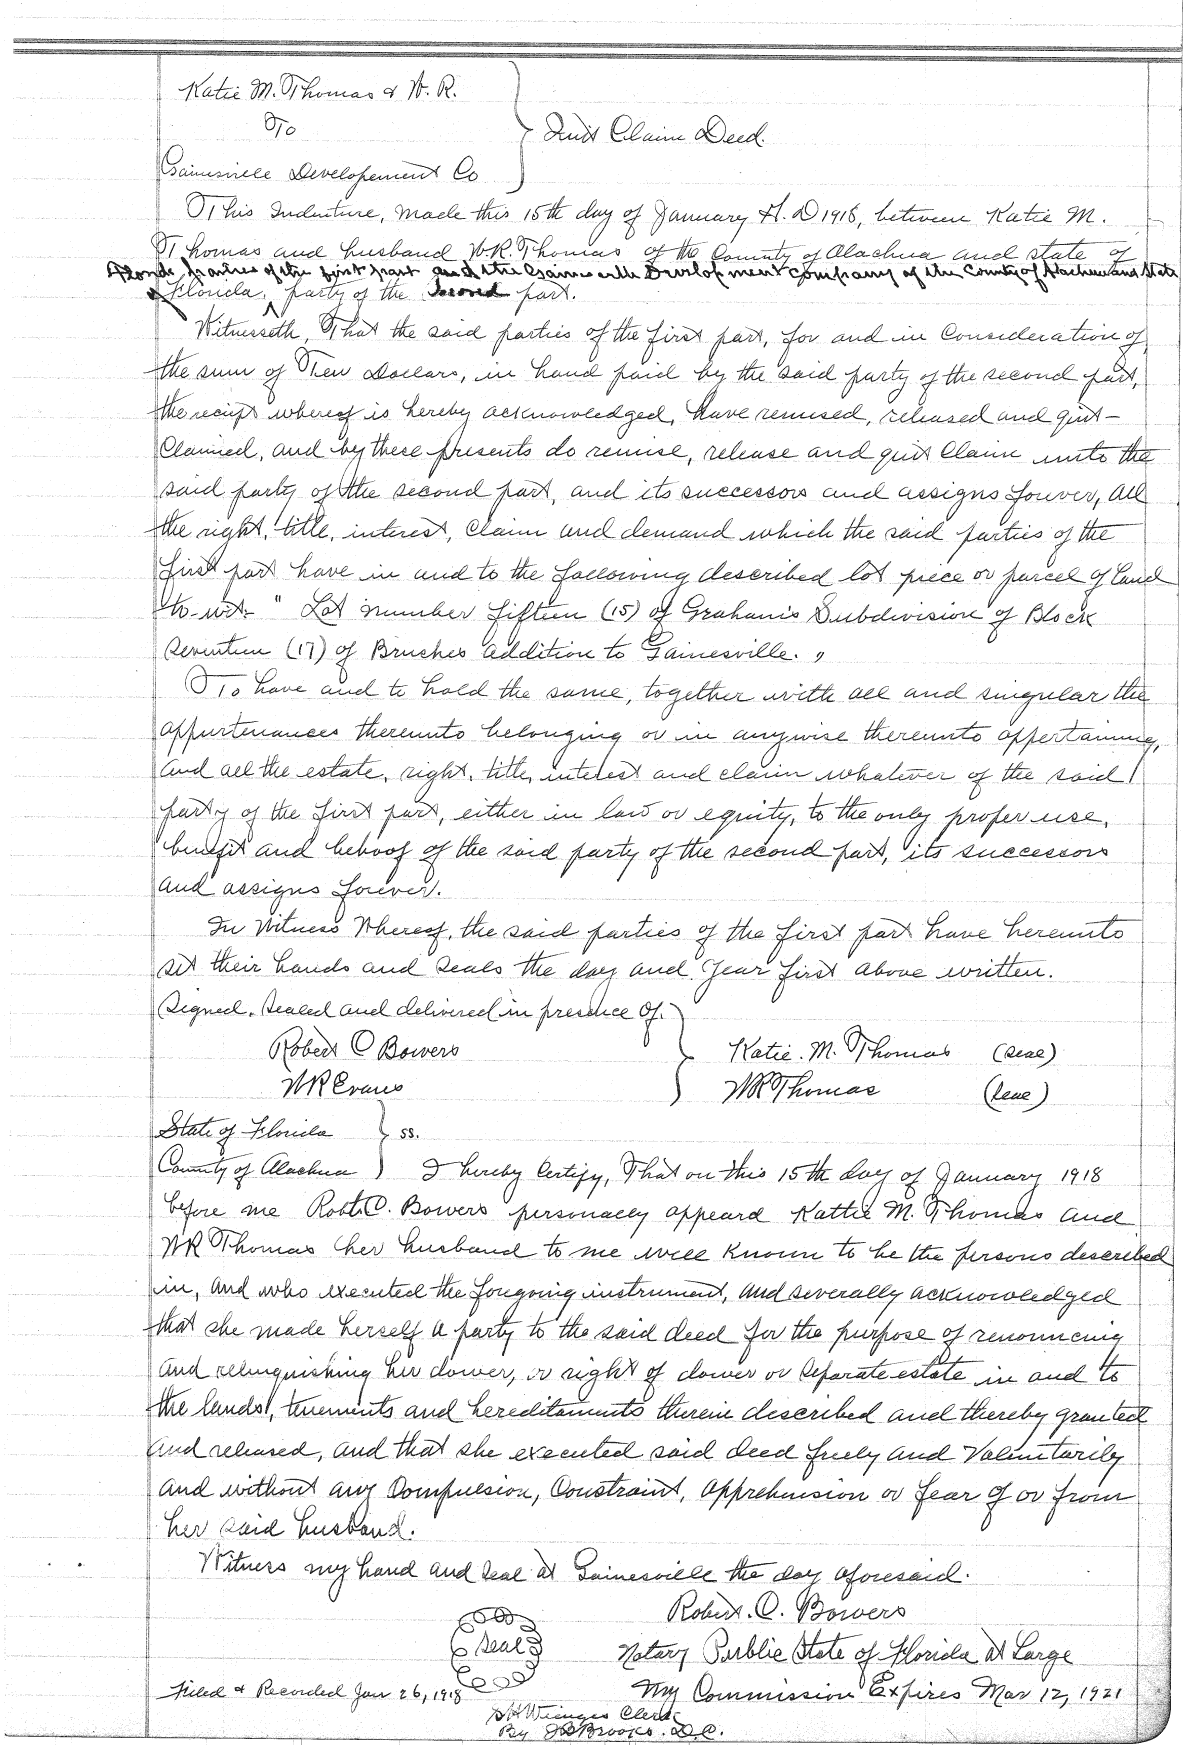 Katie M. Thomas & W. R.
To
Quit Claim Deed.
Gainesville Developement Co
This Indenture, made this 15th day of January A. D 1918, between Katie M.
Thomas and husband W.R. Thomas of the County of Alachua and state of
Florida, parties of the first part and the Gainesville Development Company of the County of Alachua and State
of Florida, party of the second part.
Witnesseth, That the said parties of the first part, for and in Consideration of
the sum of Ten Dollars, in hand paid by the said party of the second part,
the recipt whereof is hereby acknowledged, have remised, released and quit-
Claimed, and by these presents do remise, release and quit Claim unto the
said party of the second part, and its successors and assigns forever, all
the right, title, interest, claim and demand which the said parties of the
first part have in and to the following described lot piece or parcel of land
to-wit- " Lot number fifteen (15) of Graham's Subdivision of Block
seventeen (17) of Brushes addition to Gainesville. "
To have and to hold the same, together with all and singular the
appurtenances thereunto belonging or in anywise thereunto appertaining,
and all the estate, right, title, interest and claim whatever of the said
party of the first part, either in law or equity, to the only proper use,
benefit and behoof of the said party of the second part, its successors
and assigns forever.
In Witness Whereof, the said parties of the first part have hereunto
set their hands and seals the day and year first above written.
Signed, sealed and delivered in presence of.
Robert C Bowers Katie. M. Thomas (seal)
WR Evans WR Thomas (seal)
State of Florida ss.
County of Alachua I hereby Certify, That on this 15th day of January 1918
before me Robt. C. Bowers personally appeard Kattie M. Thomas and
WR Thomas her husband to me well known to be the persons described
in, and who executed the forgoing instrument, and severally acknowledged
that she made herself a party to the said deed for the purpose of renouncing
and relinquishing her dower, or right of dower or separate estate in and to
the lands, tenements and hereditaments therein described and thereby granted
and released, and that she executed said deed freely and Voluntarily
and without any Compulsion, Constraint, apprehension or fear of or from
her said husband.
Witness my hand and seal at Gainesville the day aforesaid.
Robert. C. Bowers
Seal
Notary Public State of Florida at Large
Filed & Recorded Jan 26, 1918 My Commission Expires Mar 12, 1921
SH Wienges Clerk
By Brooks. D.C.